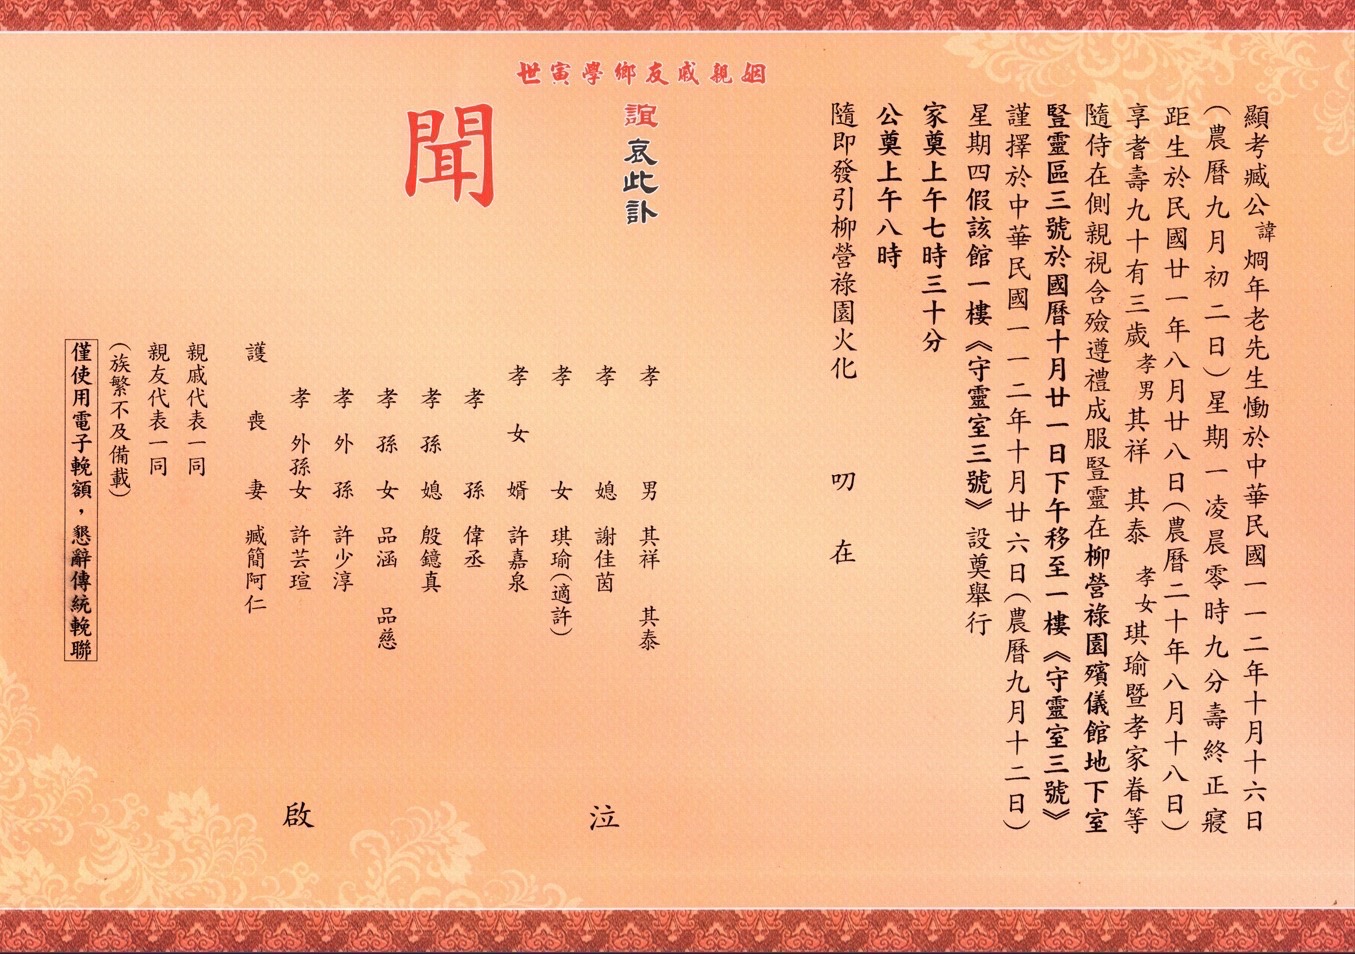 顯考臧公諱烱年老先生慟於中華民國一一二年十月十六日
(農曆九月初二日)星期一凌晨零時九分壽終正寢
距生於民國廿一年八月廿八日(農曆二十年八月十八日)
享耆壽九十有三歲孝男其祥 其泰 孝女琪瑜暨孝家眷等
隨侍在側親視含殮遵禮成服豎靈在柳營祿園殯儀館地下室
豎靈區三號於國曆十月廿一日下午移至一樓《守靈室三號》
謹擇於中華民國一一二年十月廿六日(農曆九月十二日)
星期四假該館一樓《守靈室三號》設奠舉行
家奠上午七時三十分
公奠上午八時
隨即發引柳營祿園火化 叨在
世寅學鄉友戚親姻
誼哀此訃
聞
孝男 其祥 其泰
孝媳 謝佳茵
孝女 琪瑜(適許)
孝女婿 許嘉泉
孝孫 偉丞
孝孫媳 殷鐿真
孝孫女 品涵 品慈
孝外孫 許少淳
孝外孫女 許芸瑄
泣
護喪妻 臧簡阿仁
啟
親戚代表一同
親友代表一同
(族繁不及備載)
僅使用電子輓額,懇辭傳統輓聯